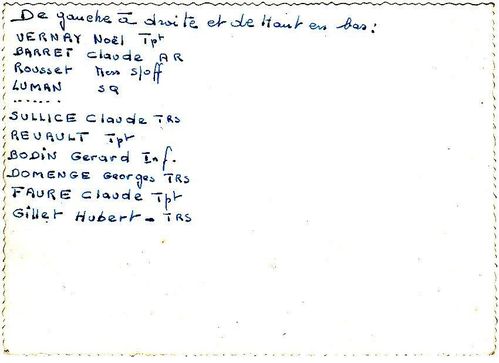 De gauche à droite et de Haut en bas :
VERNAY Noël Tpt
BARRET Claude AR
Rousset Mess s/off
LUMAN SQ
.......
SULLICE Claude TRS
REVAULT Tpt
BODIN Gerard Inf.
DOMENGE Georges TRS
FAURE Claude Tpt
Gillet Hubert - TRS